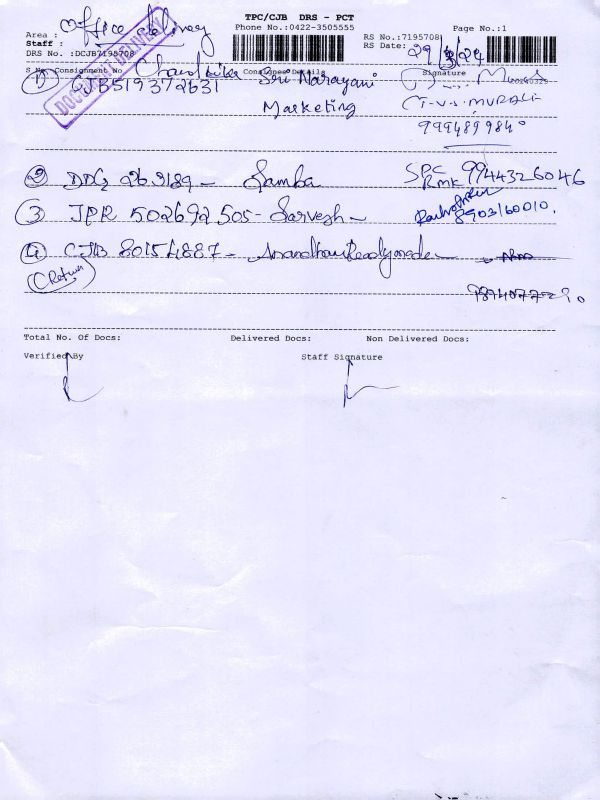 TPC/CJB DRS - PCT
Phone No.:0422-3505555
Page No.:1
Area : Office delivery
RS No.:7195708
Staff :
RS Date: 29/3/24
DRS No. :DCJB7195708
DOCUMENT DELIVERY
S No Consignment No Consignee Details Signature
① CJB519372631 Sri Narayani
Marketing
G.V.S. MURALI
9994899840
② 
Samba
SPC
RMK 9944326046
③ JPR 502692505 - Sarvesh -
8903160010.
④ CJB 80154887 - Anandham Readymade
(Return)
Total No. Of Docs: Delivered Docs: Non Delivered Docs:
Verified By Staff Signature